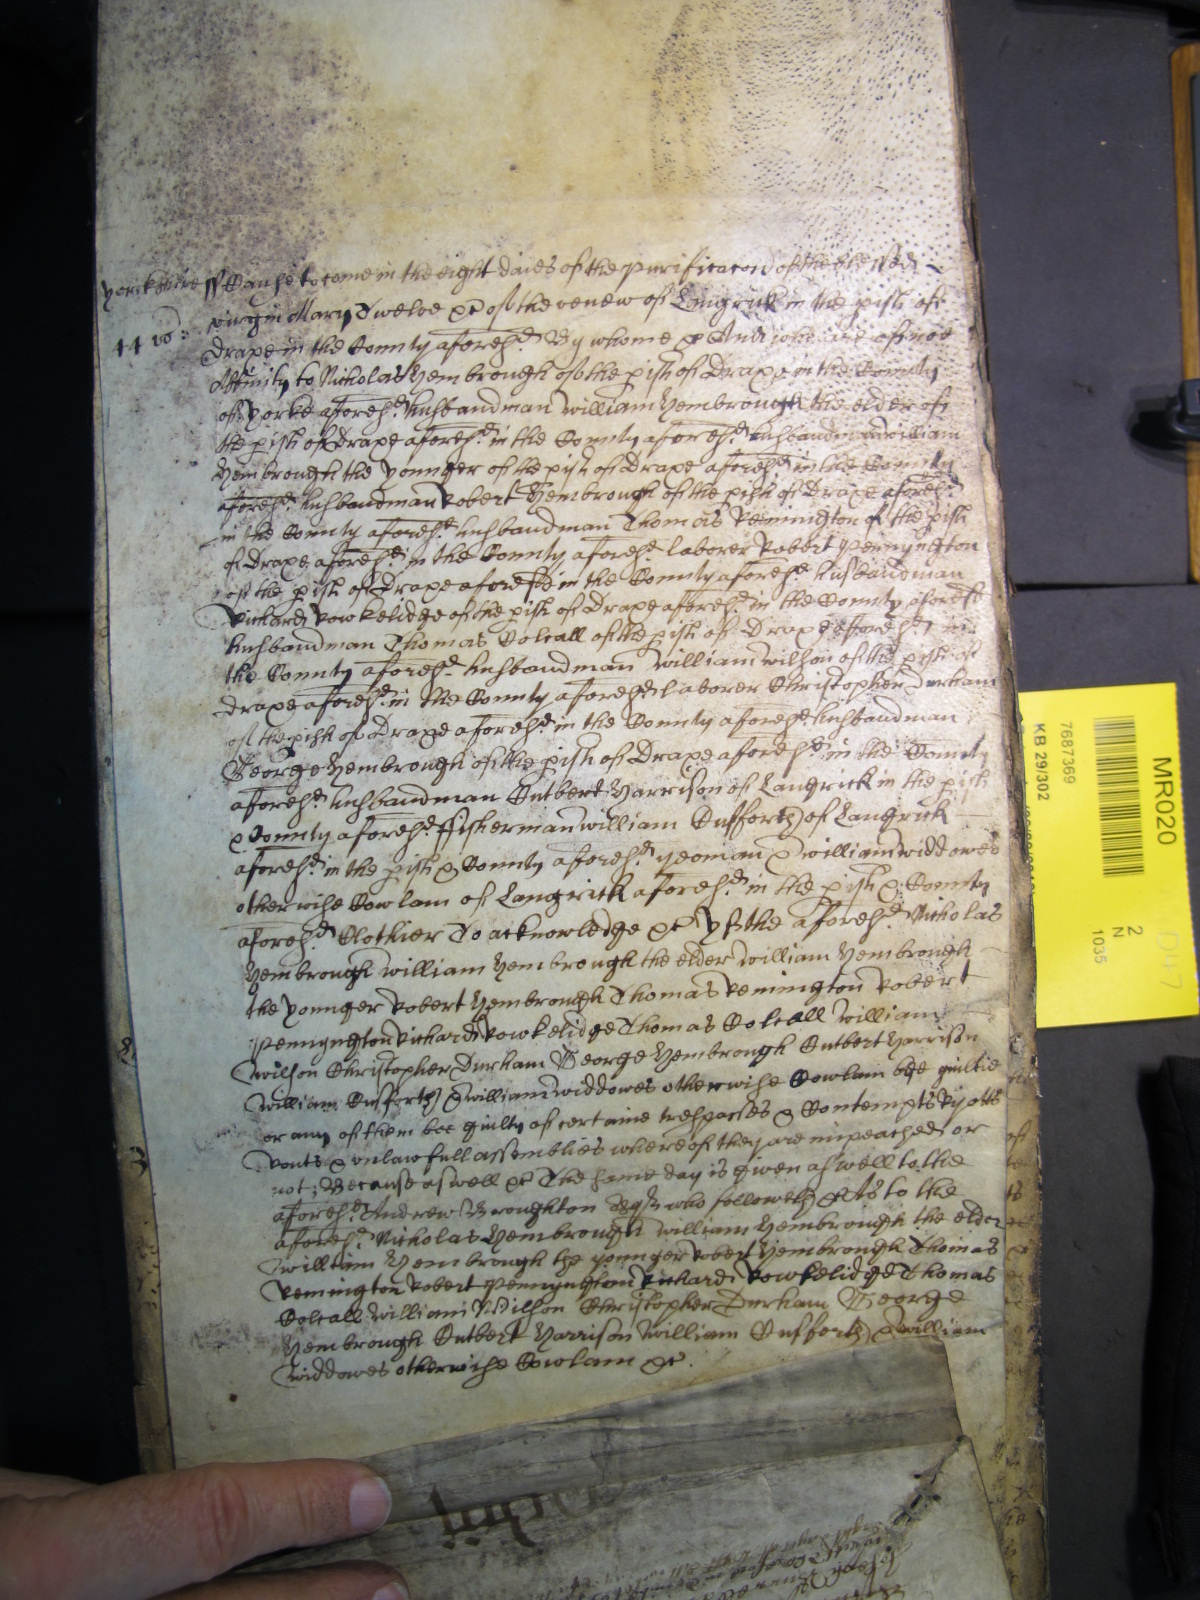 Yorkeshire ss Cause to come in the eight daies of the purificacon of the blessed
14 ro: virgin Mary Twelve &c of the venew of Langrick in the pish of
Drax in the County aforesd. By whome &c And who are of noe
Affinity to Nicholas Hembrough of the pish of Drax in the County
of Yorke aforesd. husbandman William Hembrough the elder of
the pish of Drax aforesd. in the County aforesd. husbandman William
Hembrough the younger of the pish of Drax aforesd. in the County
aforesd. husbandman Robert Hembrough of the pish of Drax aforesd.
in the County aforesd. husbandman Thomas Remington of the pish
of Drax aforesd. in the County aforesd. laborer Robert Pennyngton
of the pish of Drax aforesd in the County aforesd. husbandman
Richard Rowkelidge of the pish of Drax aforesd. in the County aforesd
husbandman Thomas Coleall of the pish of Drax aforesd. in
the County aforesd. husbandman William Wilson of the pish of
Drax aforesd. in the County aforesd laborer Christopher Durham
of the pish of Drax aforesd. in the County aforesd. husbandman
George Hembrough of the pish of Drax aforesd. in the County
aforesd. husbandman Cutbert Harrison of Langrick in the pish
& County aforesd. ffisherman William Cufforth of Langrick
aforesd. in the pish & County aforesd. yeoman & William Widdowes
otherwise Cowlam of Langrick aforesd. in the pish & County
aforesd. Clothier To acknowledge &c Yf the aforesd. Nicholas
Hembrough William Hembrough the elder William Hembrough
the younger Robert Hembrough Thomas Remington Robert
Pennyngton Richard Rowkelidge Thomas Coleall William
Wilson Christopher Durham George Hembrough Cutbert Harrison
William Cufforth & William Widdowes otherwise Cowlam bee guiltie
or any of them bee guilty of certaine trespasses & Contempts Ryotts
routs & unlawfull assemblies whereof they are impeached or
not; Because aswell &c The same day is given aswell to the
aforesd. Andrew Broughton Esqr. who followeth &c As to the
aforesd. Nicholas Hembrough William Hembrough the elder
William Hembrough the younger Robert Hembrough Thomas
Remington Robert Pennyngton Richard Rowkelidge Thomas
Coleall William Wilson Christopher Durham George
Hembrough Cutbert Harrison William Cufforth & William
Widdowes otherwise Cowlam &c.
MR020
2
N
1035
7687369
KB 29/302